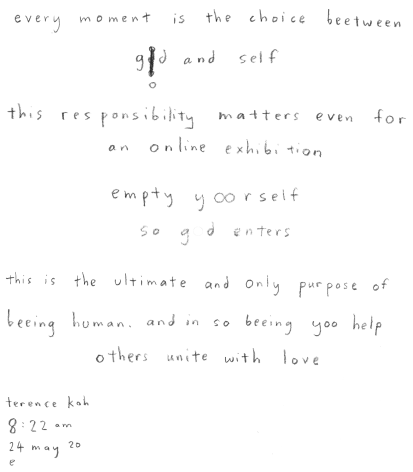 every moment is the choice beetween
g!d and self
this responsibility matters even for
an online exhibition
empty yoorself
so g d enters
this is the ultimate and only purpose of
beeing human. and in so beeing yoo help
others unite with love
terence koh
8:22 am
24 may 20
e